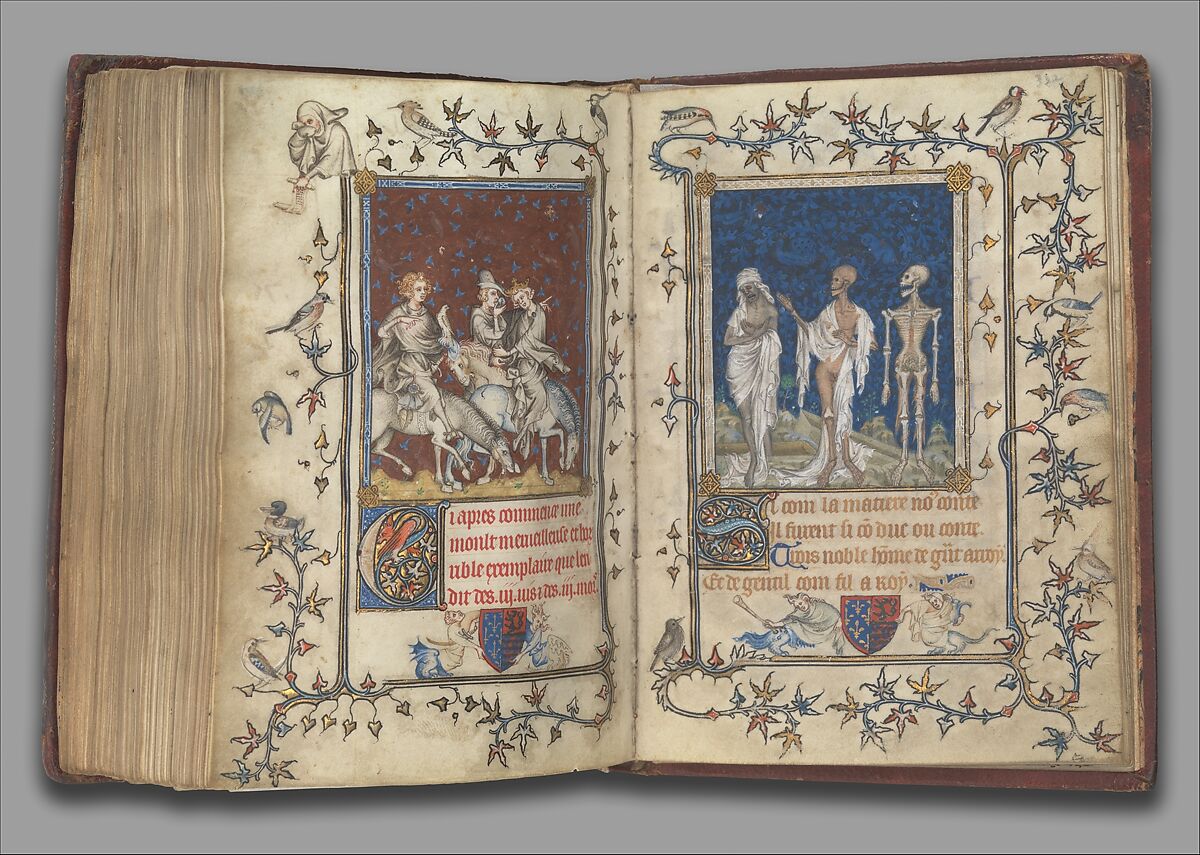 Ci apres commence une
moult merueilleuse et hor
rible exemplaire que len
dit des .iij. uis ⁊ des .iij. mors
Si com la matiere no9 conte
Il furent si cō duc ou conte
Trois noble hōme de
Et de gentil com fil a Roy.